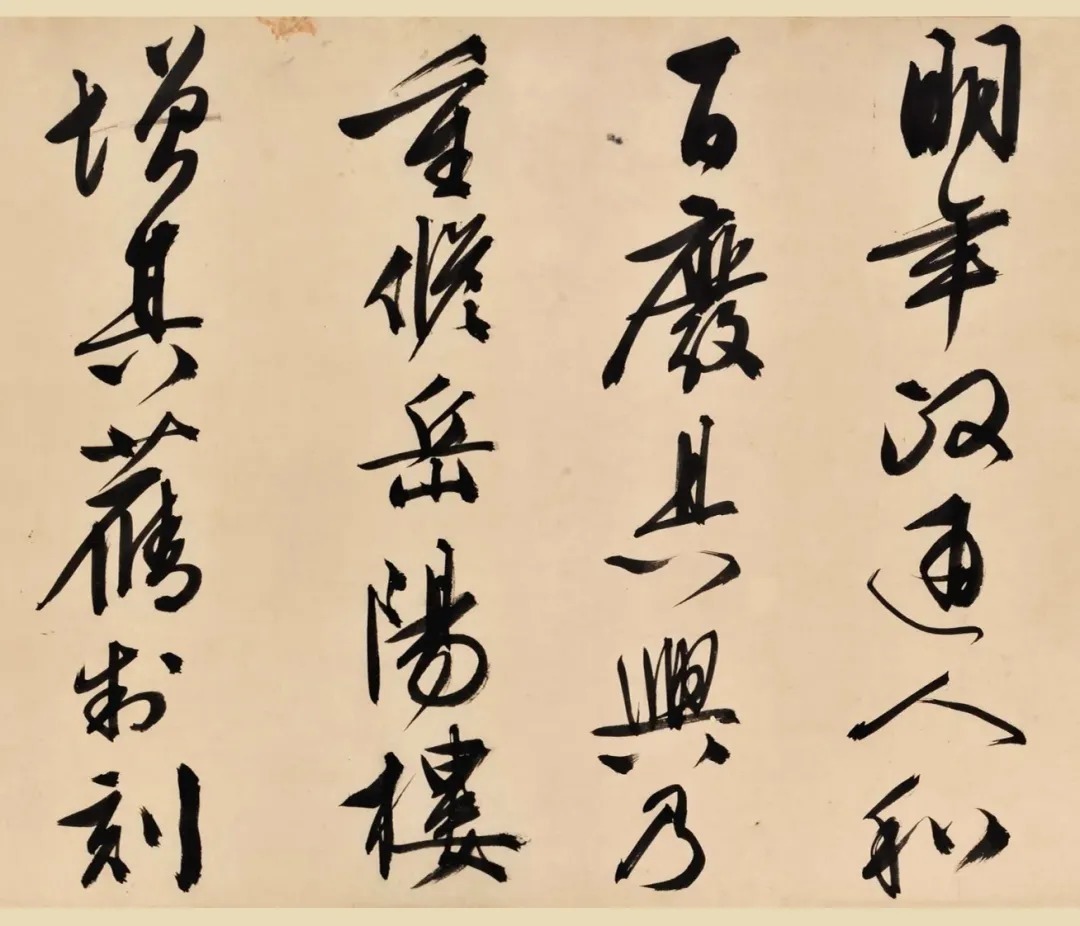 明年政通人和
百廢具興乃
重脩岳陽樓
增其舊制刻